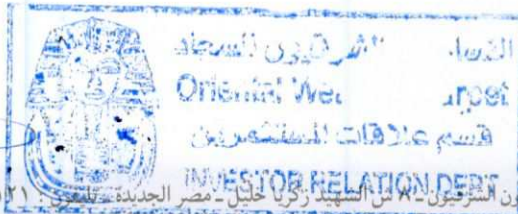 الشرقيون للسجاد
Oriental
قسم علاقات المستثمرين
INVESTOR RELATION DEPT
الشرقيون - ٨ ش الشهيد زكريا خليل - مصر الجديدة - تليفون :